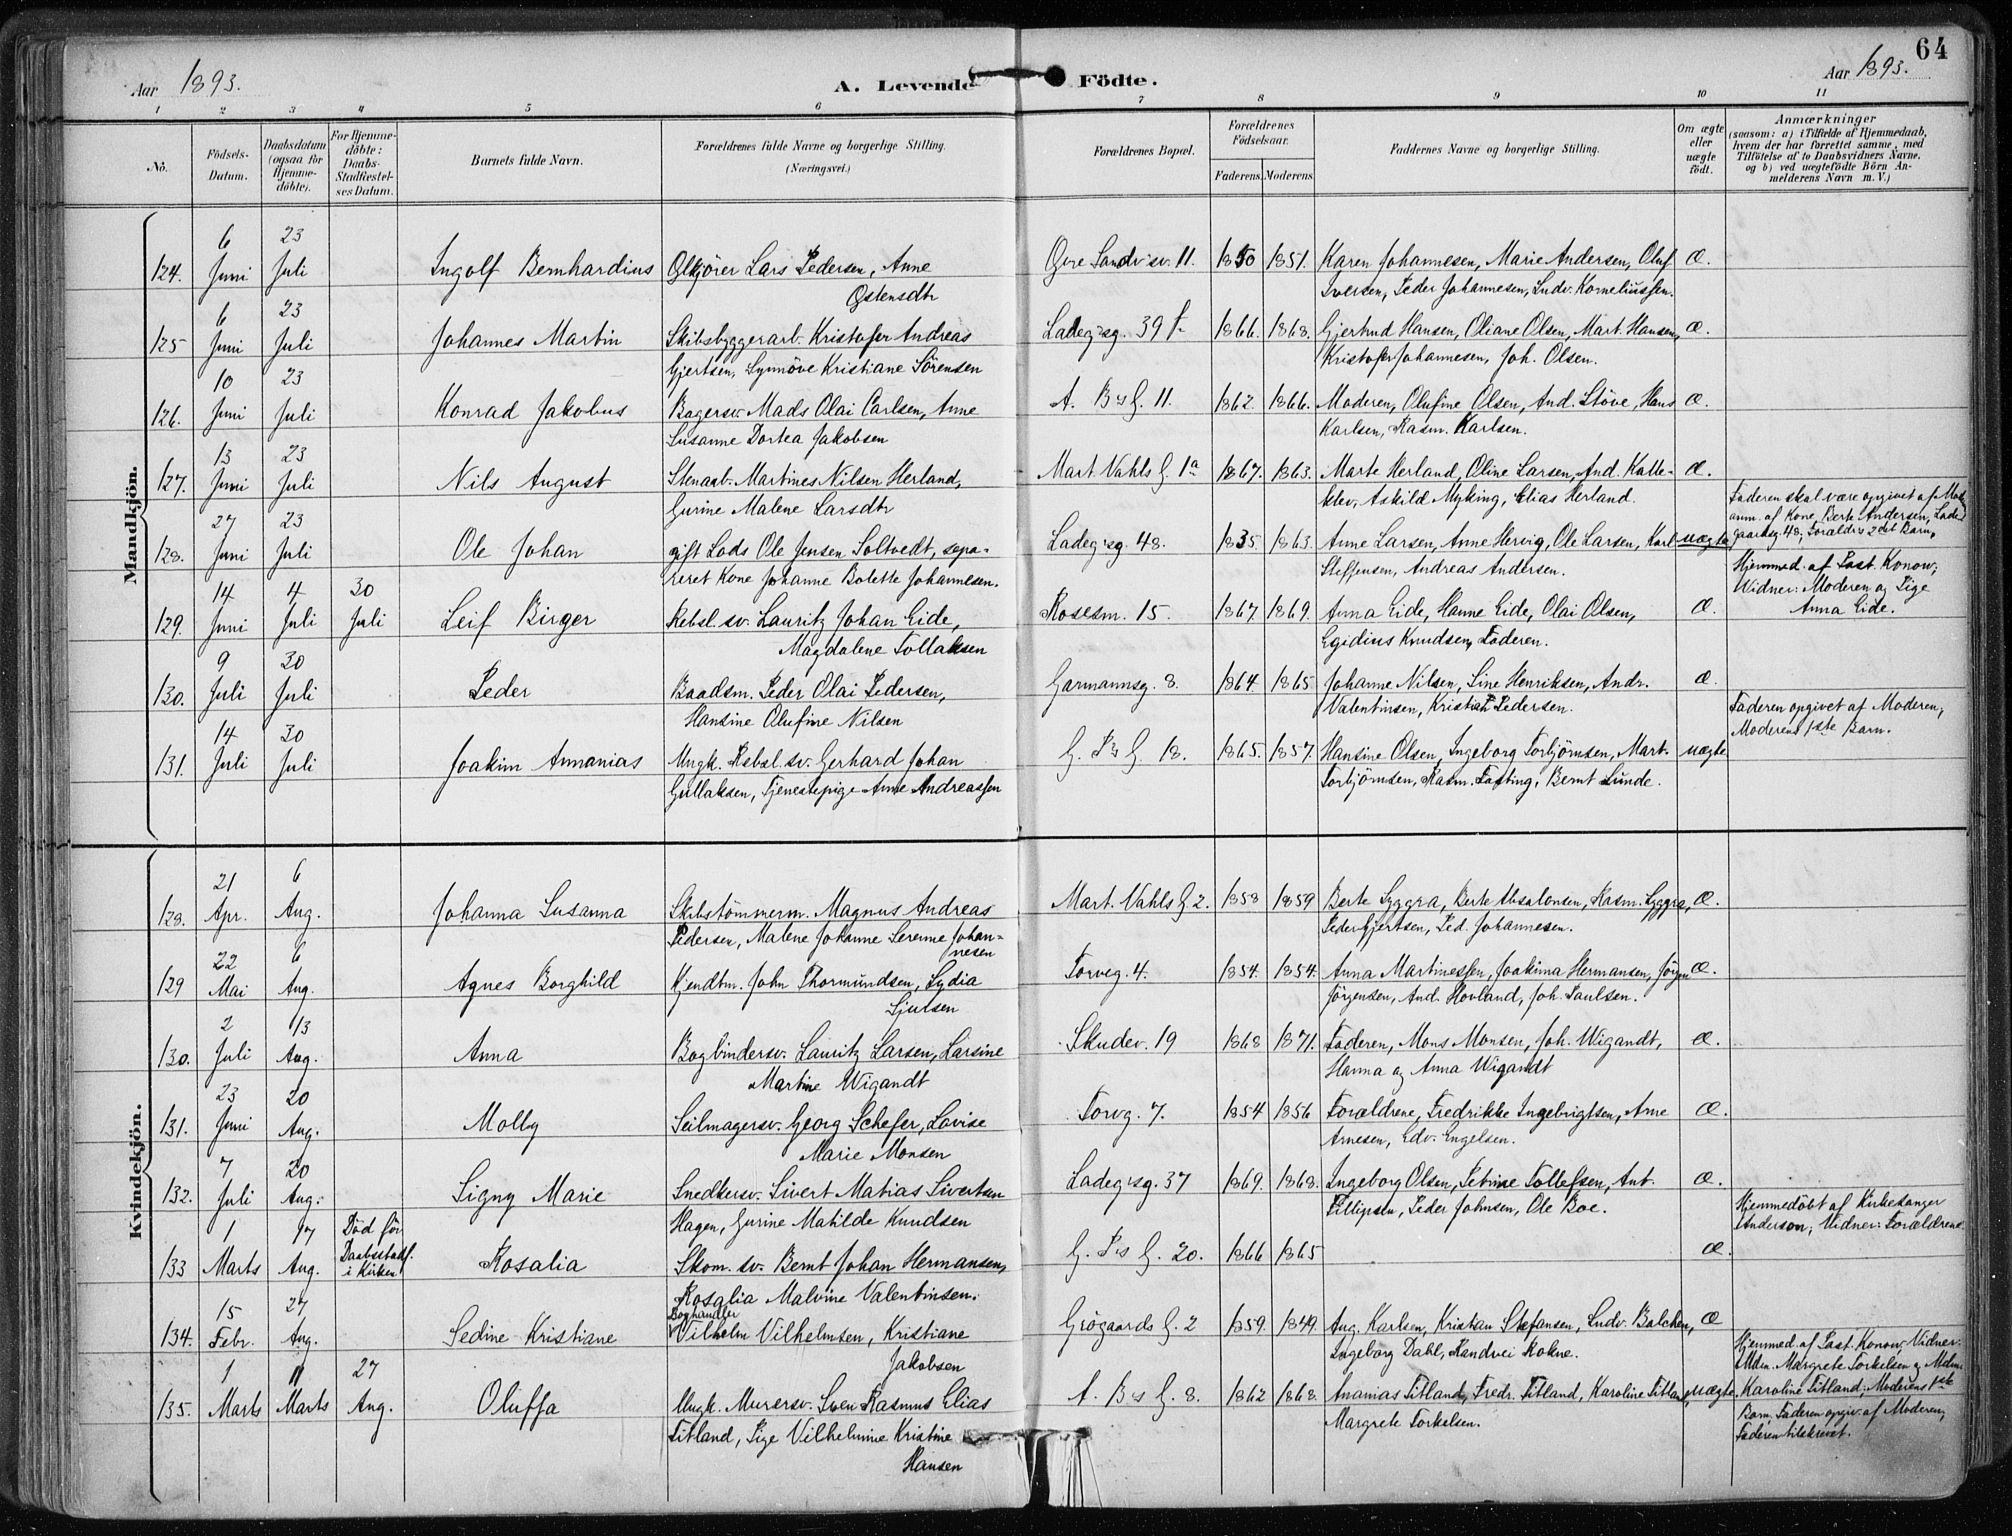 64
Aar 1893.
A. Levende Födte.
Aar 1893.
1 2 3 4 5 6 7 8 9 10 11
No.
Födsels-Datum.
Daabsdatum (ogsaa for Hjemmedöbte).
For Hjemmedöbte: Daabs-Stadfestelses Datum.
Barnets fulde Navn.
Forældrenes fulde Navne og borgerlige Stilling.
(Næringsvei.)
Forældrenes Bopæl.
Forældrenes Födselsaar.
Faderens. Moderens.
Faddernes Navne og borgerlige Stilling.
Om ægte eller uægte födt.
Anmærkninger
(saasom: a) i Tilfælde af Hjemmedaab, hvem der har forrettet samme, med Tilföielse af to Daabsvidners Navne, og b) ved uægtefödte Börn Anmelderens Navn m. V.)
Mandkjön.
124. 6 Juni 23 Juli Ingolf Bernhardius Ølkjörer Lars Pedersen, Anne Östensdtr Övre Sandv.sv. 11. 1850 1851. Karen Johannesen, Marie Andersen, Oluf Iversen, Peder Johannesen, Ludv. Korneliussen. Æ.
125 6 Juni 23 Juli Johannes Martin Skibsbyggerarb. Kristofer Andreas Gjertsen, Synnöve Kristiane Sörensen Ladeg.sg. 39 1866. 1868. Gjertrud Hansen, Oliane Olsen, Mart. Hansen, Kristofer Johannesen, Joh. Olsen. Æ.
126. 10 Juni 23 Juli Konrad Jakobus Bagersv. Mads Olai Carlsen, Anne Susanne Dortea Jakobsen A. B.s G. 11. 1862. 1866. Moderen, Olufine Olsen, And. Stöve, Hans Karlsen, Rasm. Karlsen. Æ.
127. 13 Juni 23 Juli Nils August Stenarb. Martines Nilsen Herland, Gurine Malene Larsdtr Mart. Vahls G. 1a 1867. 1863. Marte Herland, Oline Larsen, And. Kalleklev, Askild Myking, Elias Herland. Æ.
128. 27 Juni 23 Juli Ole Johan gift Lods Ole Jensen Soltvedt, separeret Kone Johanne Bolette Johannesen. Ladeg.sg. 48. 1835. 1863. Anne Larsen, Anne Hervig, Ole Larsen, Karl Steffensen, Andreas Andersen. uægte Faderen skal være opgivet af Mod. anm. af Kone Berte Andersen, Ladegaardsg. 48, Forældrs 2det Barn,
129. 14 Juni 4 Juli 30 Juli Leif Birger Rebsl. sv. Lauritz Johan Eide, Magdalene Tollaksen Rosesm. 15. 1867. 1869. Anna Eide, Hanne Eide, Olai Olsen, Egidius Knudsen, Faderen. Æ. Hjemmed. af Past. Konow; Widner: Moderen og Pige Anna Eide.
130. 9 Juli 30 Juli Peder Baadsm. Peder Olai Pedersen, Hansine Olufine Nilsen Garmannsg. 8. 1864. 1865 Johanne Nilsen, Sine Henriksen, Andr. Valentinsen, Kristian Pedersen. Æ.
131. 14 Juli 30 Juli Joakim Annanias Ungk. Rebsl. sv. Gerhard Johan Gullaksen, Tjenestepige Anne Andreassen G. P.s G. 18. 1865. 1857. Hansine Olsen, Ingeborg Torbjörnsen, Mart. Torbjörnsen, Rasm. Fasting, Bernt Lunde. uægte Faderen opgivet af Moderen; Moderens 1ste Barn.
Kvindekjön.
128. 21 Apr. 6 Aug. Johanna Susanna Skibstömmerm. Magnus Andreas Pedersen, Malene Johanne Serenne Johannesen Mart. Vahls G 2. 1858 1859 Berte Lyggra, Berte Absalonsen, Rasm. Lyggra, Peder Gjertsen, Ped. Johannesen. Æ.
129 22 Mai 6 Aug. Agnes Borghild Kjendtm. John Thormundsen, Lydia Sjursen Torveg. 4. 1854. 1854. Anna Martinessen, Joakima Hermansen, Jörgen Jörgensen, And. Hovland, Joh. Paulsen. Æ.
130. 2 Juli 13 Aug. Anna Bogbindersv. Lauritz Larsen, Larsine Martine Wigandt Skudev. 19 1868 1871. Faderen, Mons Monsen, Joh. Wigandt, Hanna og Anna Wigandt Æ.
131. 23 Juni 20 Aug. Molly Seilmagersv. Georg Schefer, Lovise Marie Monsen Torvg. 7. 1854 1856 Forældrene, Fredrikke Ingebrigtsen, Arne Arnesen, Edv. Engelsen. Æ.
132. 7 Juli 20 Aug. Signy Marie Snedkersv. Sivert Matias Sivertsen Hagen, Gurine Matilde Knudsen Ladeg.sg. 37 1869. 1868. Ingeborg Olsen, Petrine Tollefsen, Ant. Fillipsen, Peder Johnsen, Ole Boe. Æ.
133 1 Marts 17 Aug. Död för Daabsstadf. i Kirken Rosalia Skom. sv. Bernt Johan Hermansen, Rosalia Malvine Valentinsen. G. P.s G. 20. 1866 1865 Æ. Hjemmedöbt af Kirkesanger Anderson; Vidner: Forældrene.
134. 15 Febr. 27 Aug. Sedine Kristiane Boghandler Vilhelm Vilhelmsen, Kristiane Jakobsen Grögaards G. 2 1859. 1849. Aug. Karlsen, Kristian Stefansen, Ludv. Balchen, Ingeborg Dahl, Randvei Rokne. Æ
135. 1 Marts 11 Marts 27 Aug. Oluffa Ungk. Murersv. Sven Rasmus Elias Titland, Pige Vilhelmine Kristine Hansen A. B.s G. 8. 1862 1868. Ananias Titland, Fredr. Titland, Karoline Titland, Margrete Torkelsen. uægte. Hjemmed. af Past. Konow, Vidner: Mdm. Margrete Torkelsen og Mdm. Karoline Titland; Moderens 1ste Barn. Faderen opgiv. af Moderen; Faderen tilskrevet.